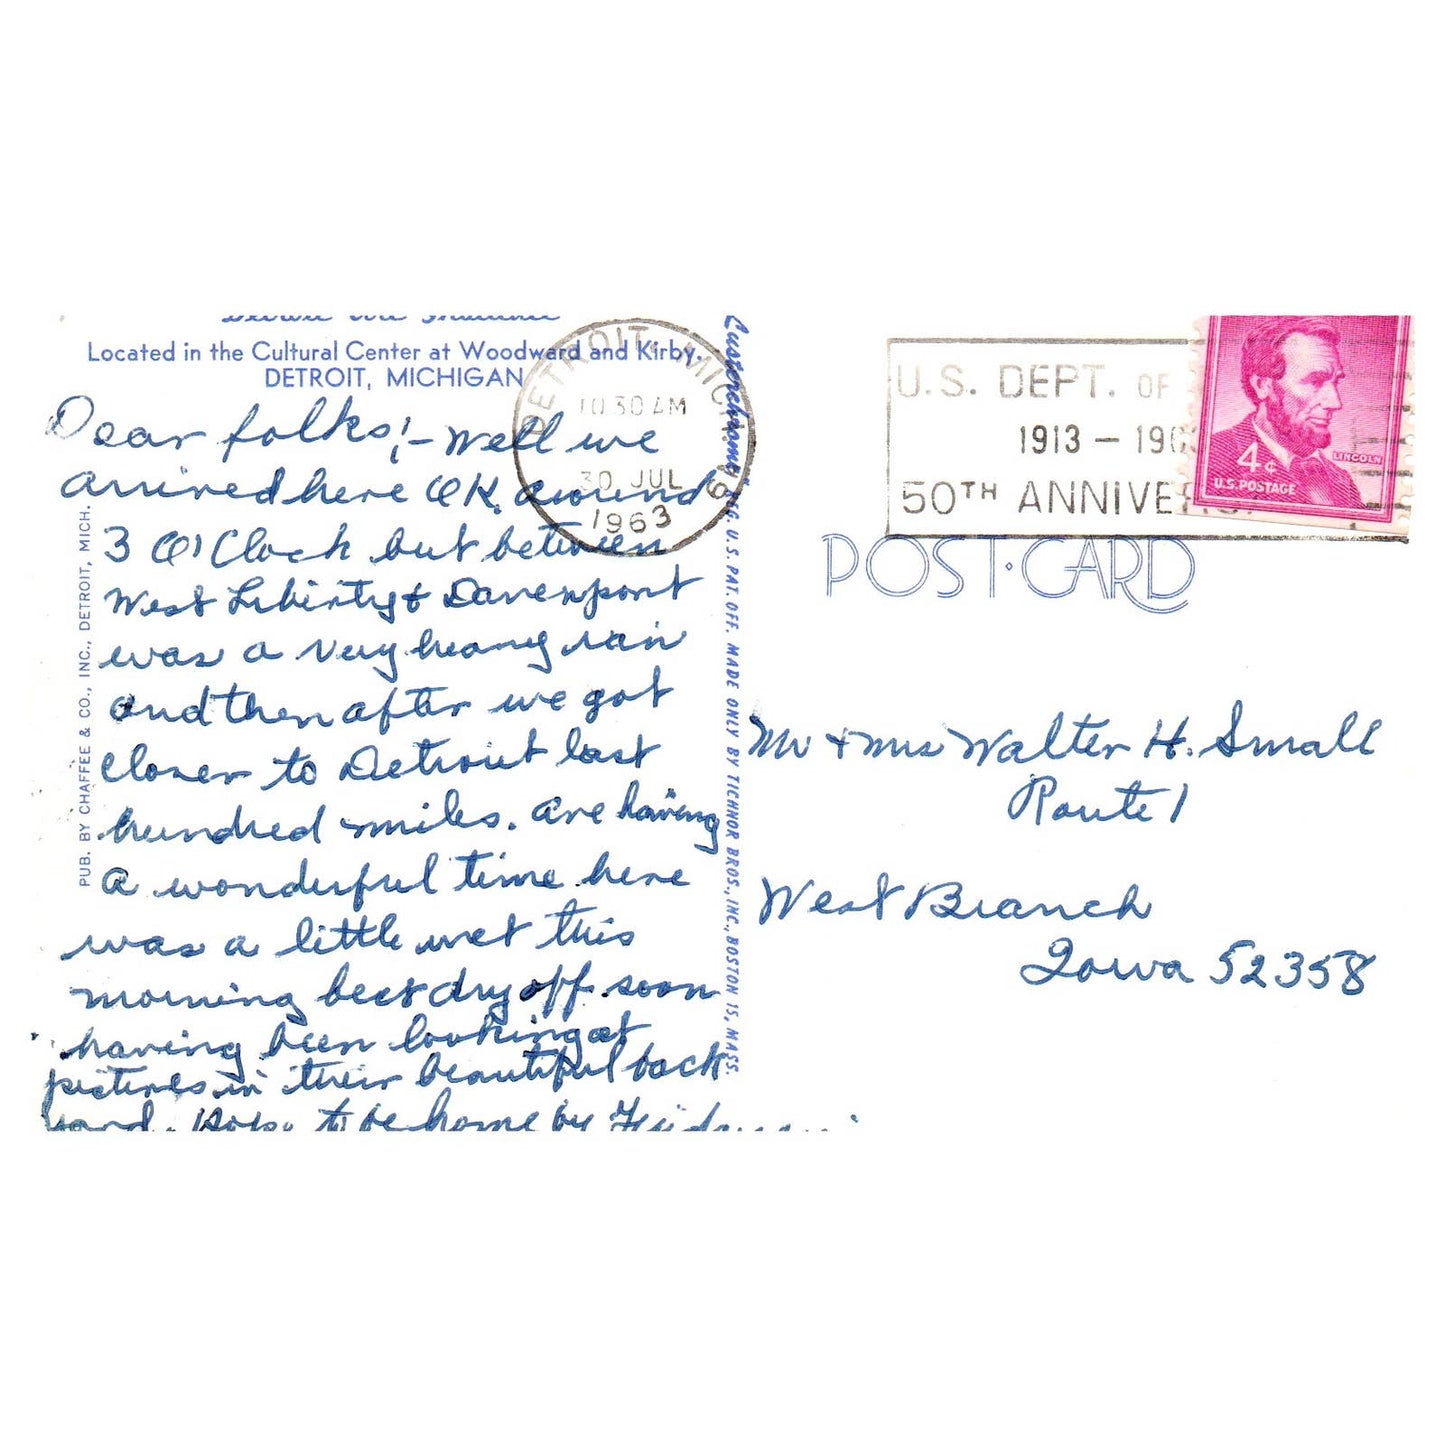 Located in the Cultural Center at Woodward and Kirby.
DETROIT, MICHIGAN
Dear folks; - Well we
arrived here OK around
3 O'Clock but between
West Liberty & Davenport
was a very heavy rain
and then after we got
closer to Detroit last
hundred miles. are having
a wonderful time. here
was a little wet this
morning but dry off soon
having been looking at
pictures in their beautiful back
yard. to be home by
PUB. BY CHAFFEE & CO., INC., DETROIT, MICH.
"Lusterchrome" REG. U. S. PAT. OFF. MADE ONLY BY TICHNOR BROS., INC., BOSTON 15, MASS.
DETROIT, MICH.
10 30 AM
30 JUL
1963
U.S. DEPT. OF
1913 – 196
50TH ANNIVE
4¢
LINCOLN
U.S. POSTAGE
POST·CARD
Mr & Mrs Walter H. Small
Route 1
West Branch
Iowa 52358